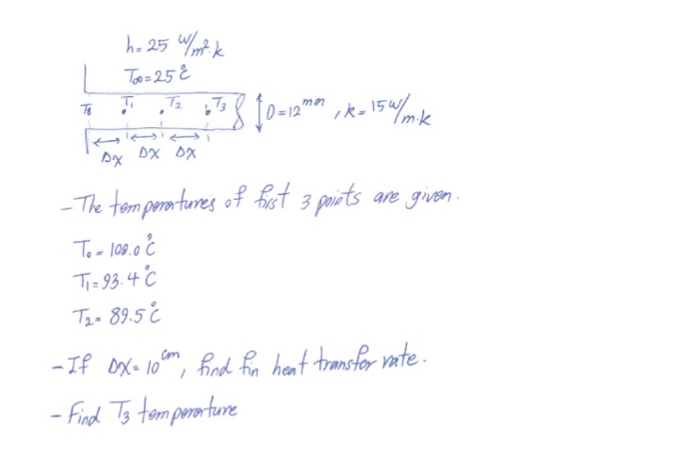 h=25 W/m².k
T∞=25°C
T0 T1 T2 T3 D=12mm, k=15W/m.k
Δx Δx Δx
- The temperatures of first 3 points are given.
T0 = 100.0°C
T1 = 93.4°C
T2 = 89.5°C
- If Δx = 10cm, find fin heat transfer rate.
- Find T3 temperature